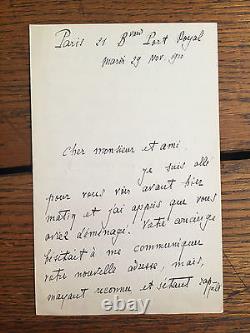 Paris 21 Bvard Port Royal
Mardi 29 Nov. 1910
Cher monsieur et ami,
je suis allé
pour vous voir avant hier
matin et j'ai appris que vous
aviez déménagé. Votre concierge
hésitait à me communiquer
votre nouvelle adresse, mais,
m'ayant reconnu et s'étant rappelé